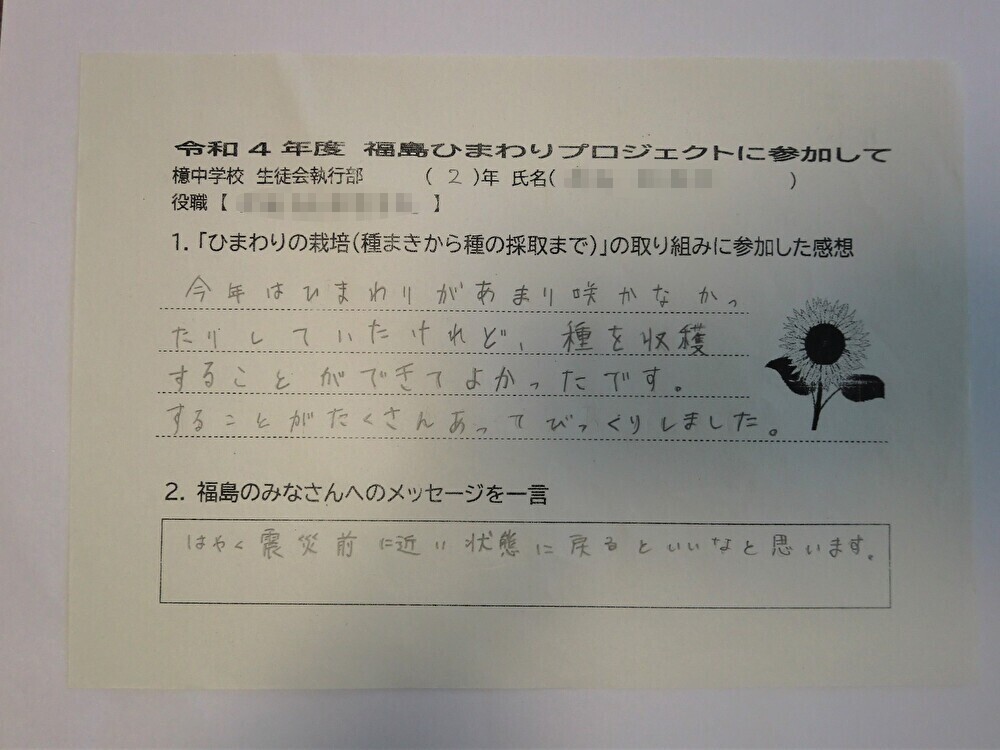 令和4年度 福島ひまわりプロジェクトに参加して
檍中学校 生徒会執行部 (2)年 氏名( )
役職【 】
1.「ひまわりの栽培(種まきから種の採取まで)」の取り組みに参加した感想
今年はひまわりがあまり咲かなかっ
たりしていたけれど、種を収穫
することができてよかったです。
することがたくさんあってびっくりしました。
2. 福島のみなさんへのメッセージを一言
はやく震災前に近い状態に戻るといいなと思います。